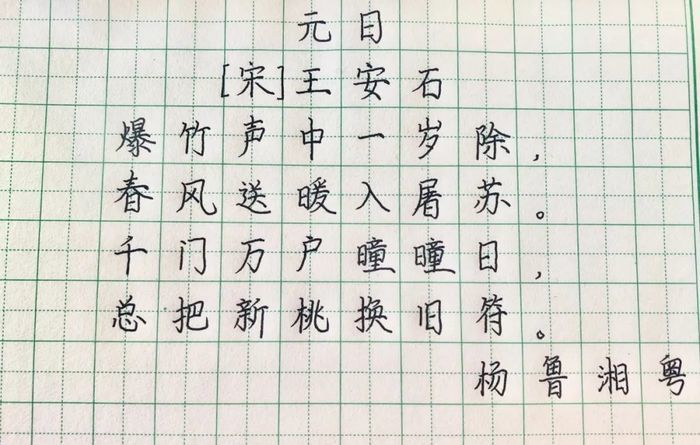 元日
[宋]王安石
爆竹声中一岁除，
春风送暖入屠苏。
千门万户瞳瞳日，
总把新桃换旧符。
杨鲁湘粤